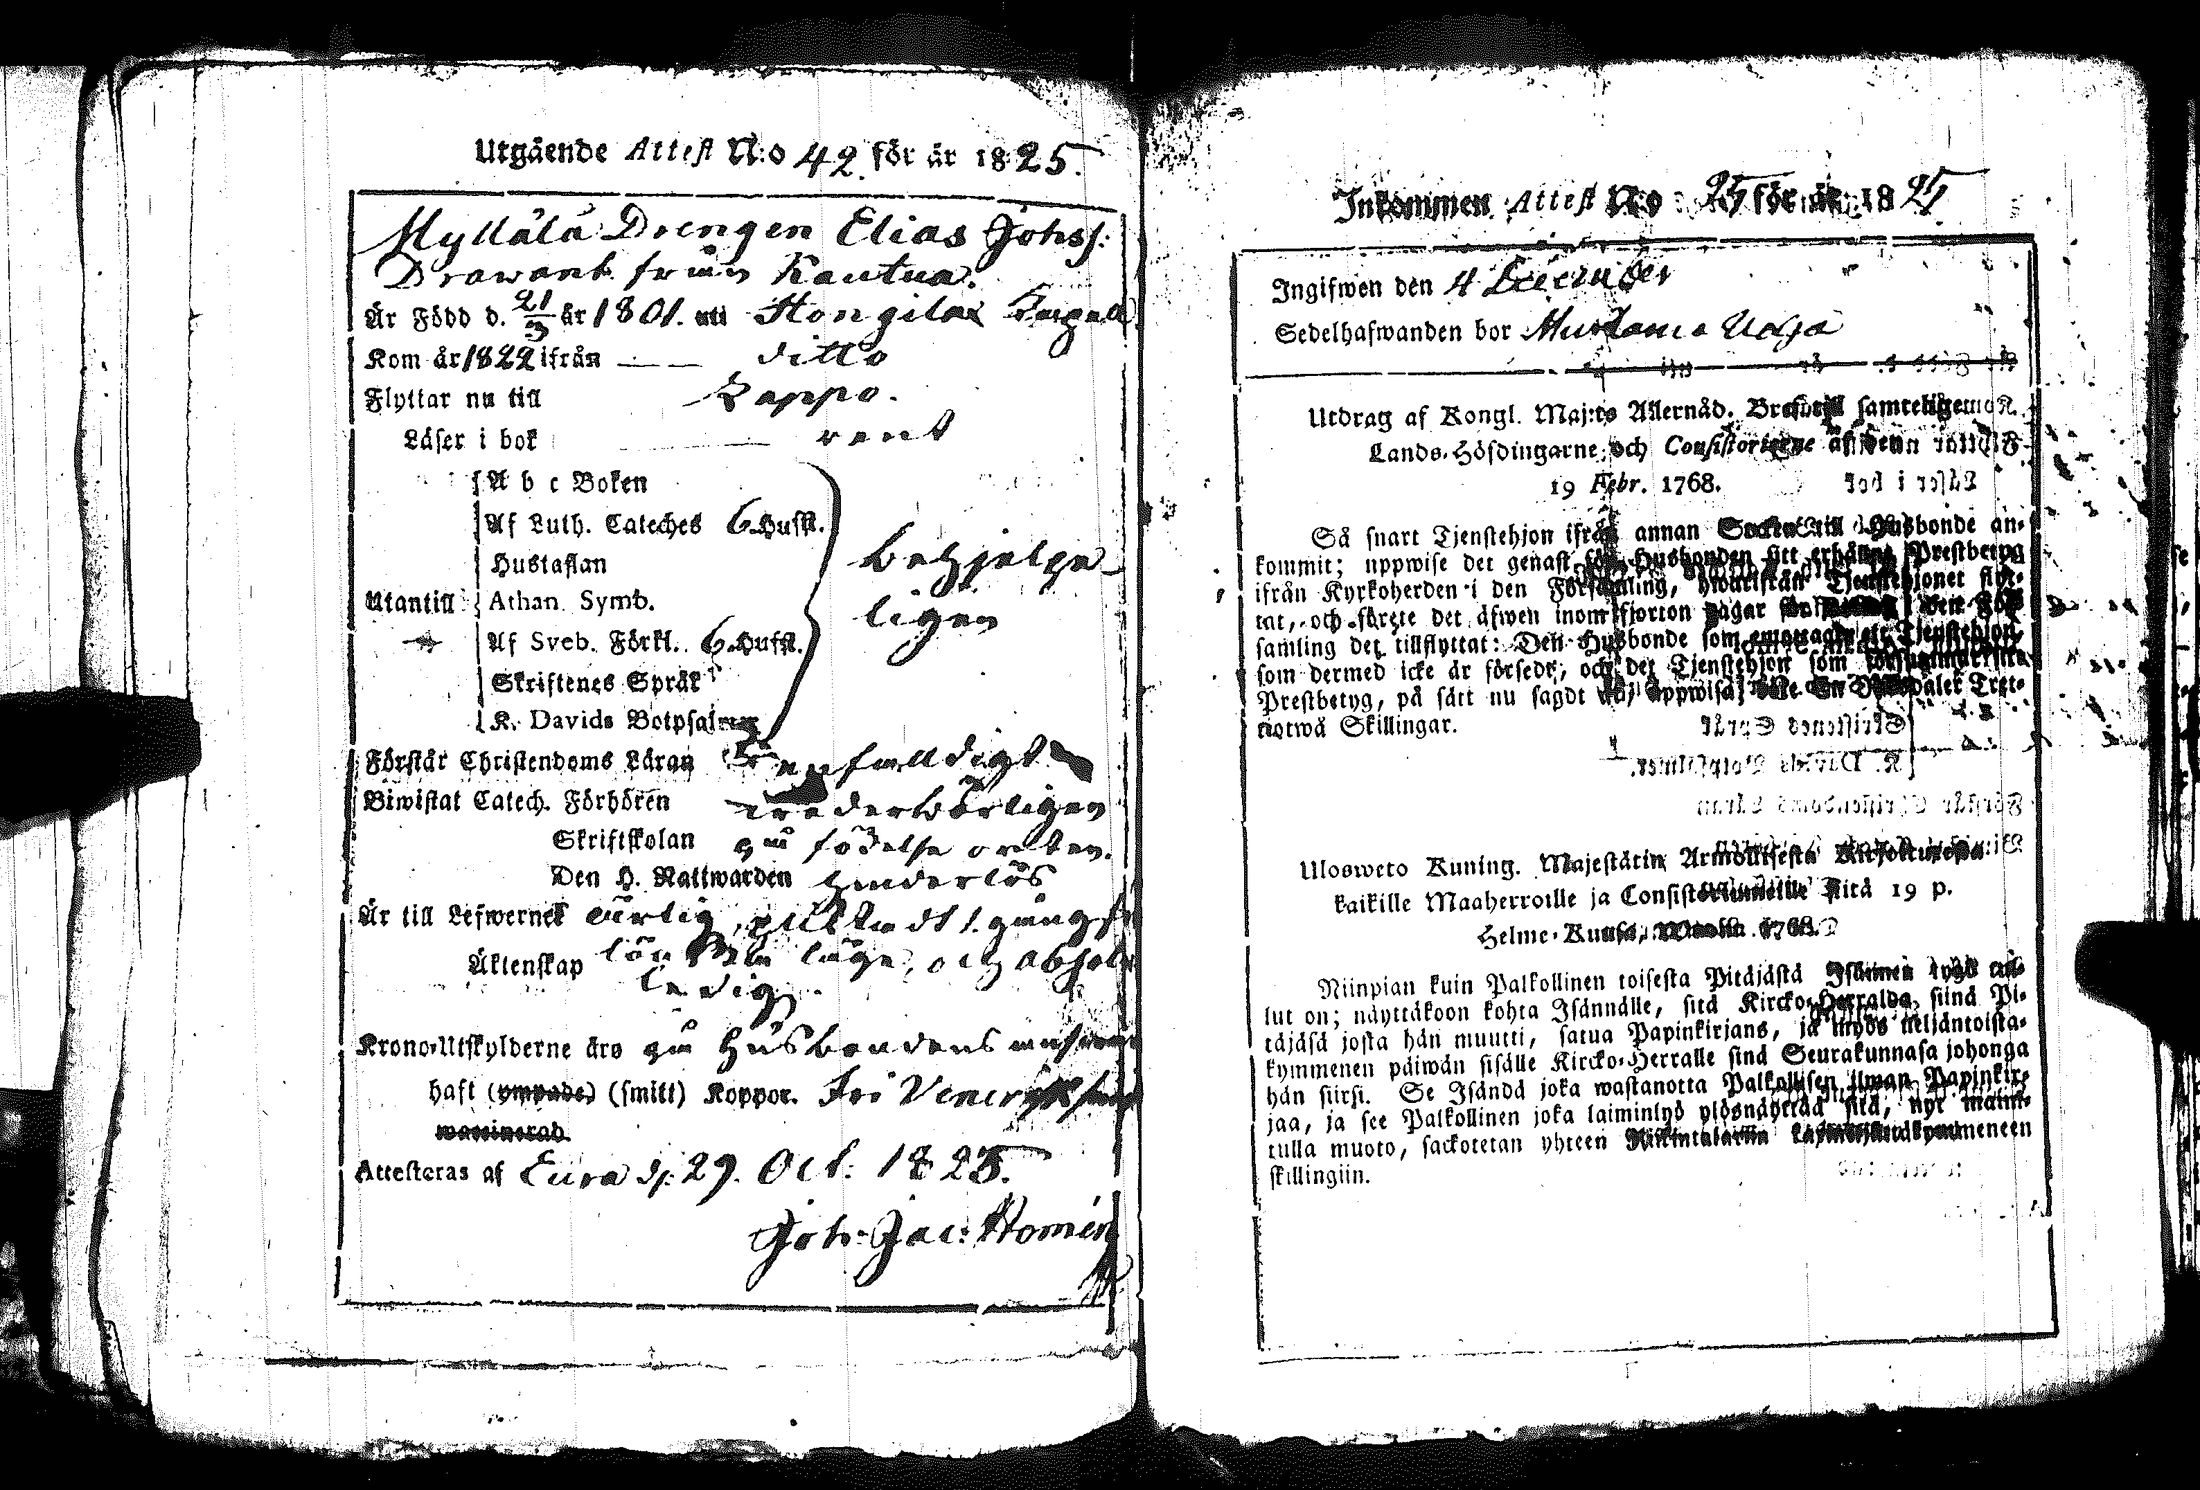 Utgående Attest N:o 42. för år 1825.
Myllälä Drengen Elias Johss:
Drawant från Kautua.
Är Född d. 21/3 år 1801. uti Hongilax Capell
Kom år 1822 ifrån — — ditto
Flyttar nu till Kappo.
Läser i bok rent
A b c Boken
Af Luth. Cateches 6 Hufst.
Hustaflan
Utantill Athan. Symb.
Af Sveb. Förkl. 6 Hufst.
Skriftenes Språk
K. Davids Botpsalmer
behjelpe-
ligen
Förstår Christendoms Läran enfalldigt
Biwistat Catech. Förhören wederbörligen
Skriftskolan på födelse orten.
Den H. Nattwarden hinderlös
Är till Lefwernet ärlig,
Äktenskap låge, och
ledig.
Krono-Utskylderne äro på Husbondens
haft (ympade) (smitt) Koppor. Fri Venerisk
Attesteras af Eura d: 29. Oct: 1825.
Joh: Jac: Homén
Inkommen Attest N:o 25 för år 1825
Ingifwen den 4 December
Sedelhafwanden bor
Utdrag af Kongl. Maj:ts Allernåd. Bref till samtelige
Lands-Höfdingarne och Consistorierne af den
19 Febr. 1768.
Så snart Tjenstehjon ifrån annan Socken till Husbonde an-
kommit; uppwise det genast för Husbonden sitt erhållna Prestbetyg
ifrån Kyrkoherden i den Församling, hwarifrån Tjenstehjonet flyt-
tat, och förete det äfwen inom fjorton dagar i den För-
samling det tillflyttat: Den Husbonde som emottager ett Tjenstehjon,
som dermed icke är försedt, och det Tjenstehjon som
Prestbetyg, på sätt nu sagdt är, uppwisa, böte En Riksdaler Tret-
tiotwå Skillingar.
Ulosweto Kuning. Majestätin Armollisesta Kirjoituxesta
kaikille Maaherroille ja Consistoriumeille sitä 19 p.
Helme-Kuusa, Wuonna 1768.
Niinpian kuin Palkollinen toisesta Pitäjästä Isännen tygö tul-
lut on; näyttäkoon kohta Isännälle, sitä Kircko-Herralda, siinä Pi-
täjäsä josta hän muutti, saatua Papinkirjans, ja myös neljäntoista-
kymmenen päiwän sisälle Kircko-Herralle sinä Seurakunnasa johonga
hän siirsi. Se Isändä joka wastanotta Palkollisen ilman Papinkir-
jaa, ja see Palkollinen joka laiminlyö ylösnäyttää sitä, nyt maini-
tulla muoto, sackotetan yhteen Riikintalariin kahteenneljättäkymmeneen
skillingiin.